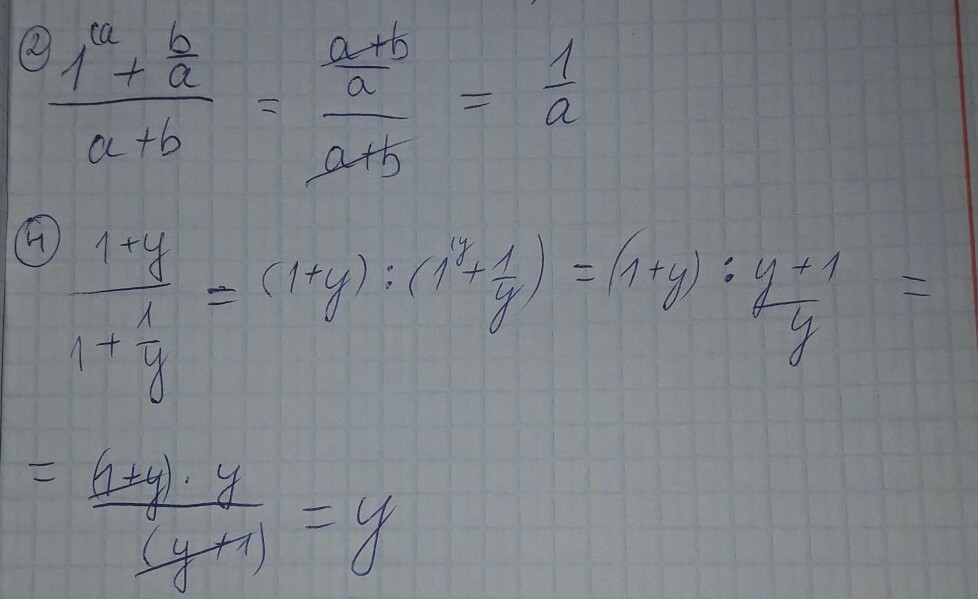 ② (1^(a + b/a)/(a+b) = ((a+b)/a)/(a+b) = 1/a
④ (1+y)/(1+1/y) = (1+y) : (1^(y + 1/y) = (1+y) : (y+1)/y =
= ((1+y) · y)/((y+1)) = y